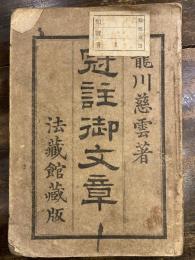 龍川慈雲著
冠註御文章
法藏館藏版